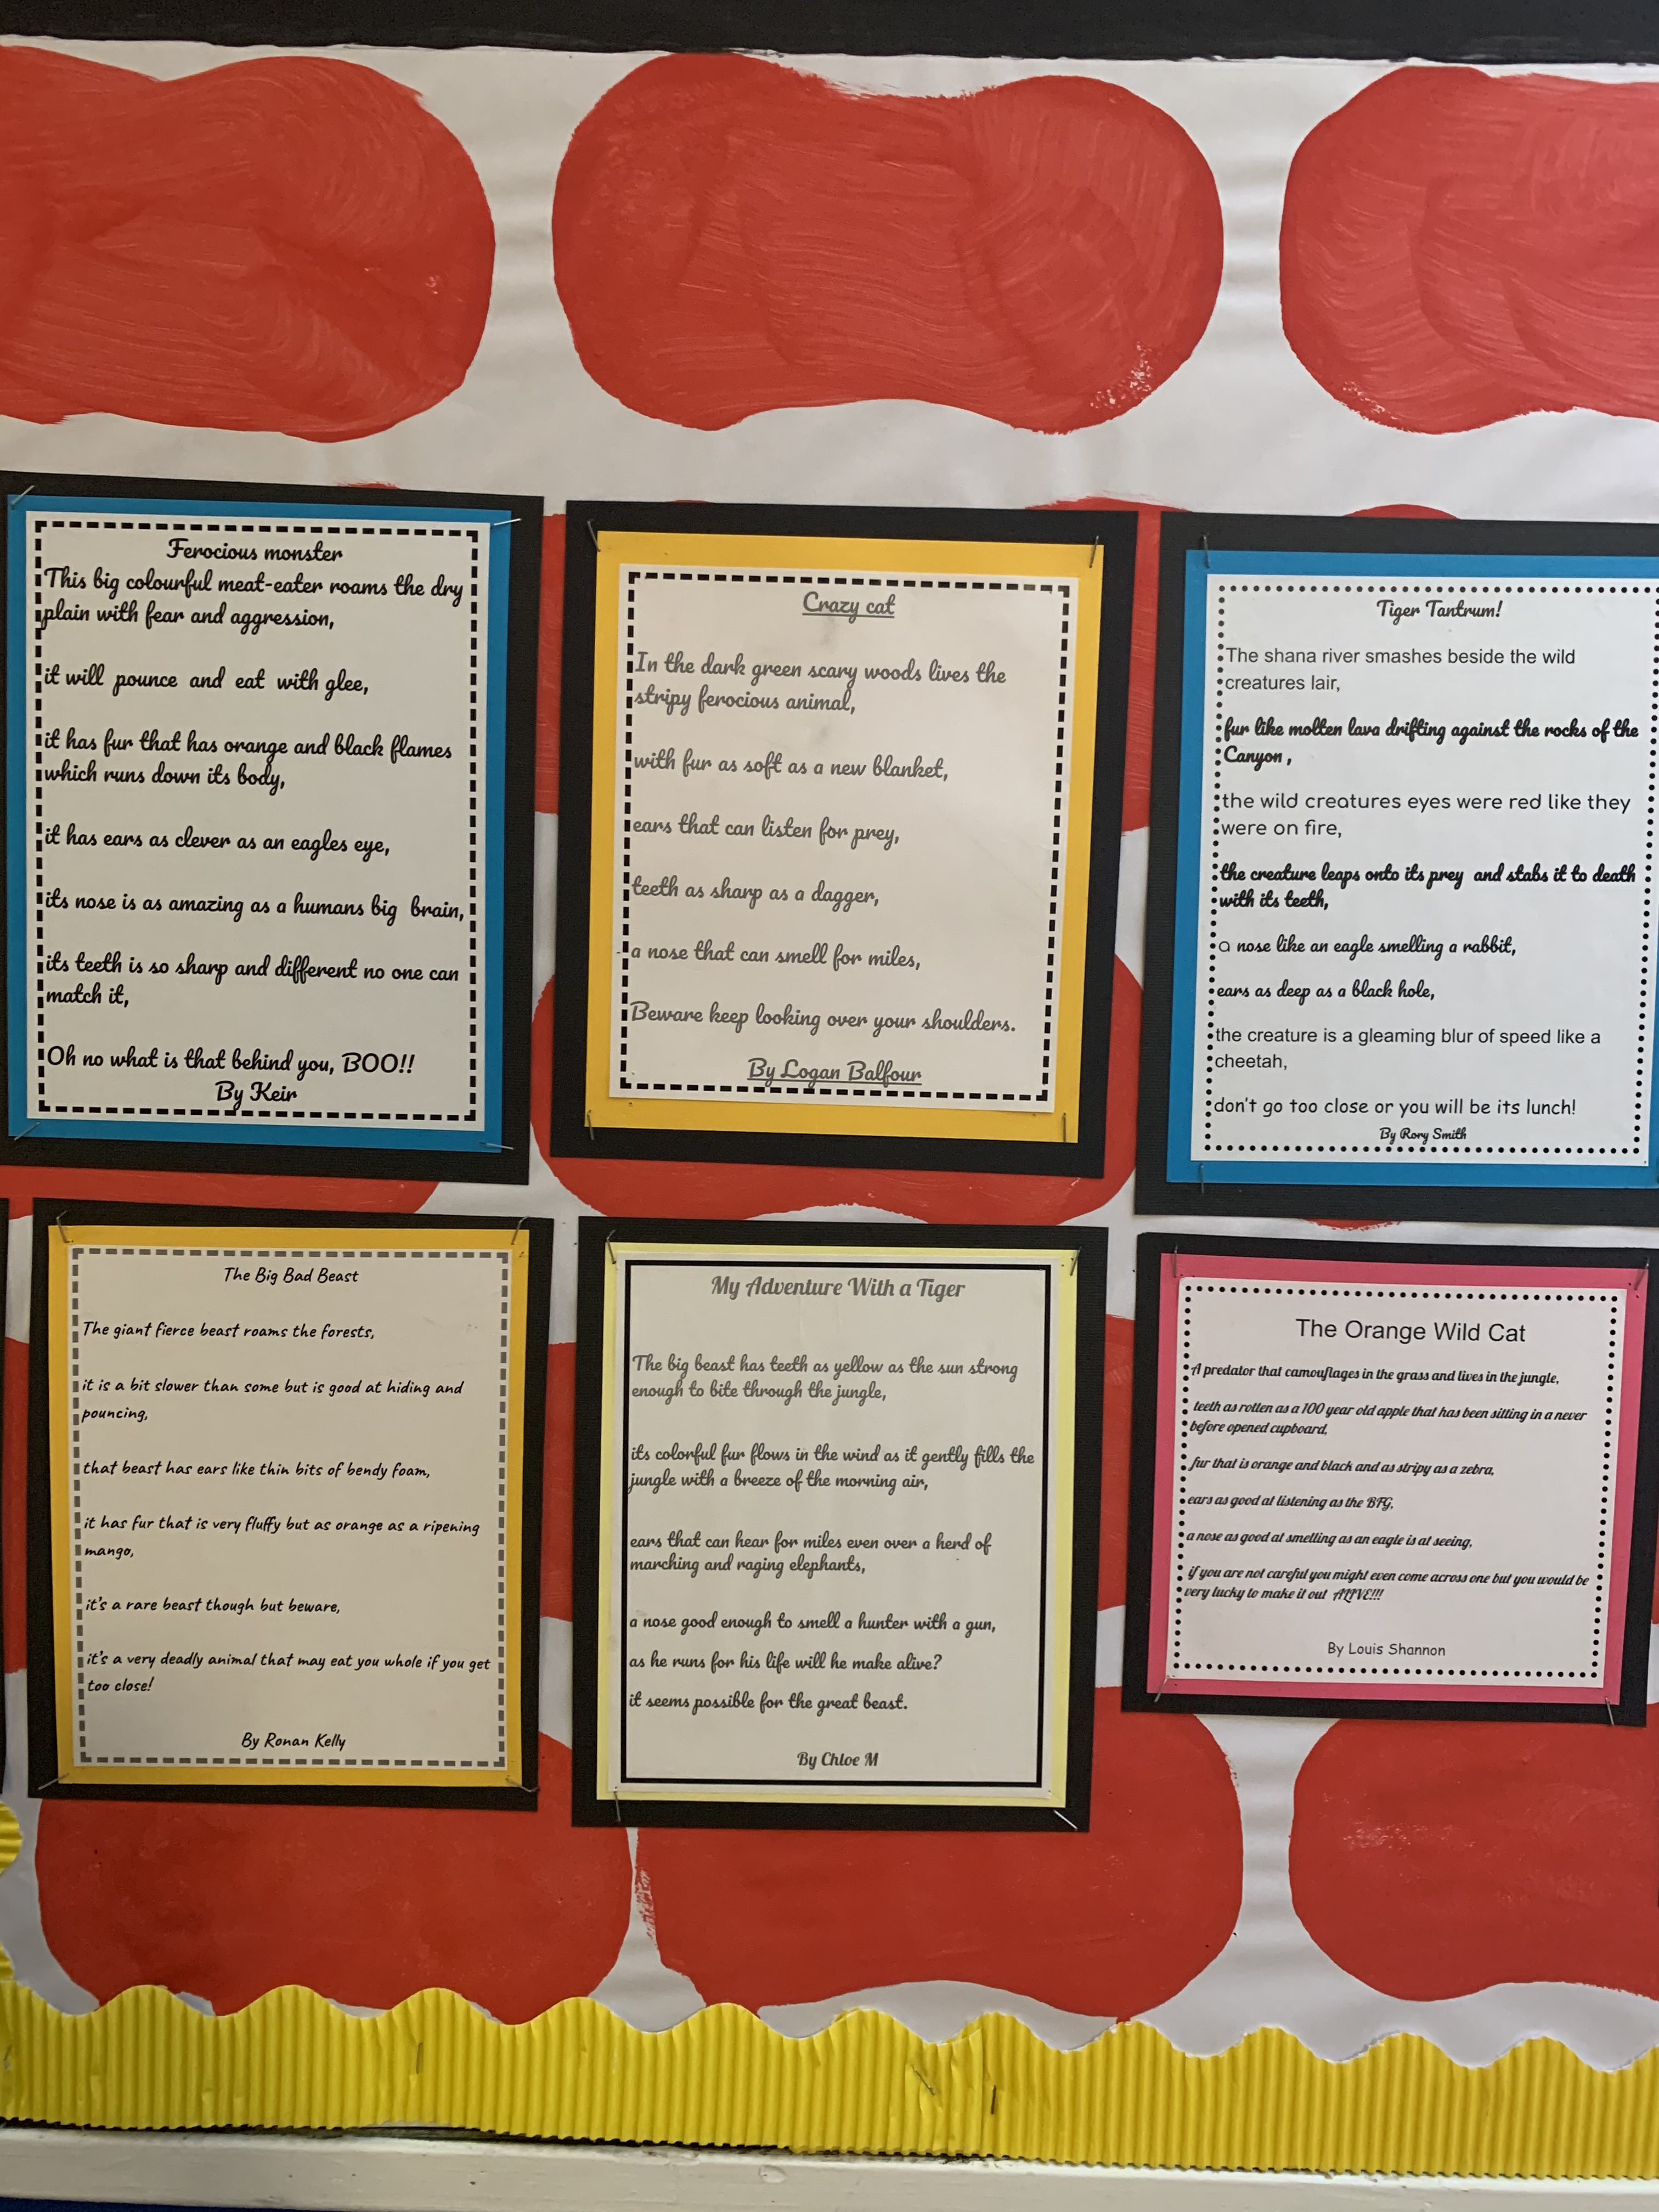 Ferocious monster
This big colourful meat-eater roams the dry
plain with fear and aggression,
it will pounce and eat with glee,
it has fur that has orange and black flames
which runs down its body,
it has ears as clever as an eagles eye,
its nose is as amazing as a humans big brain,
its teeth is so sharp and different no one can
match it,
Oh no what is that behind you, BOO!!
By Keir
Crazy cat
In the dark green scary woods lives the
stripy ferocious animal,
with fur as soft as a new blanket,
ears that can listen for prey,
teeth as sharp as a dagger,
a nose that can smell for miles,
Beware keep looking over your shoulders.
By Logan Balfour
Tiger Tantrum!
The shana river smashes beside the wild
creatures lair,
fur like molten lava drifting against the rocks of the
Canyon ,
the wild creatures eyes were red like they
were on fire,
the creature leaps onto its prey and stabs it to death
with its teeth,
a nose like an eagle smelling a rabbit,
ears as deep as a black hole,
the creature is a gleaming blur of speed like a
cheetah,
don't go too close or you will be its lunch!
By Rory Smith
The Big Bad Beast
The giant fierce beast roams the forests,
it is a bit slower than some but is good at hiding and
pouncing,
that beast has ears like thin bits of bendy foam,
it has fur that is very fluffy but as orange as a ripening
mango,
it's a rare beast though but beware,
it's a very deadly animal that may eat you whole if you get
too close!
By Ronan Kelly
My Adventure With a Tiger
The big beast has teeth as yellow as the sun strong
enough to bite through the jungle,
its colorful fur flows in the wind as it gently fills the
jungle with a breeze of the morning air,
ears that can hear for miles even over a herd of
marching and raging elephants,
a nose good enough to smell a hunter with a gun,
as he runs for his life will he make alive?
it seems possible for the great beast.
By Chloe M
The Orange Wild Cat
A predator that camouflages in the grass and lives in the jungle,
teeth as rotten as a 100 year old apple that has been sitting in a never
before opened cupboard,
fur that is orange and black and as stripy as a zebra,
ears as good at listening as the BFG,
a nose as good at smelling as an eagle is at seeing,
if you are not careful you might even come across one but you would be
very lucky to make it out ALIVE!!!
By Louis Shannon